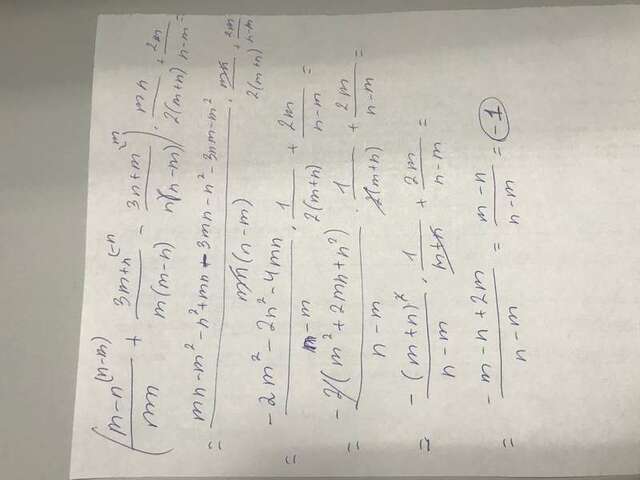 ( m-n^(n-m) / mn + 3m+n^(-n) / m(m-n) - 3n+m^(m) / n(n-m) ) · mn / 2(m+n) + 2m / n-m =
= mn-m²-n²+mn-3mn-n²-3nm-m² / mn(n-m) · mn / 2(m+n) + 2m / n-m
= -2m²-2n²-4mn / n-m · 1 / 2(m+n) + 2m / n-m =
= -2(m²+2mn+n²) / n-m · 1 / 2(m+n) + 2m / n-m =
= -(m+n)² / n-m · 1 / m+n + 2m / n-m =
= -m-n+2m / n-m = m-n / n-m = -1